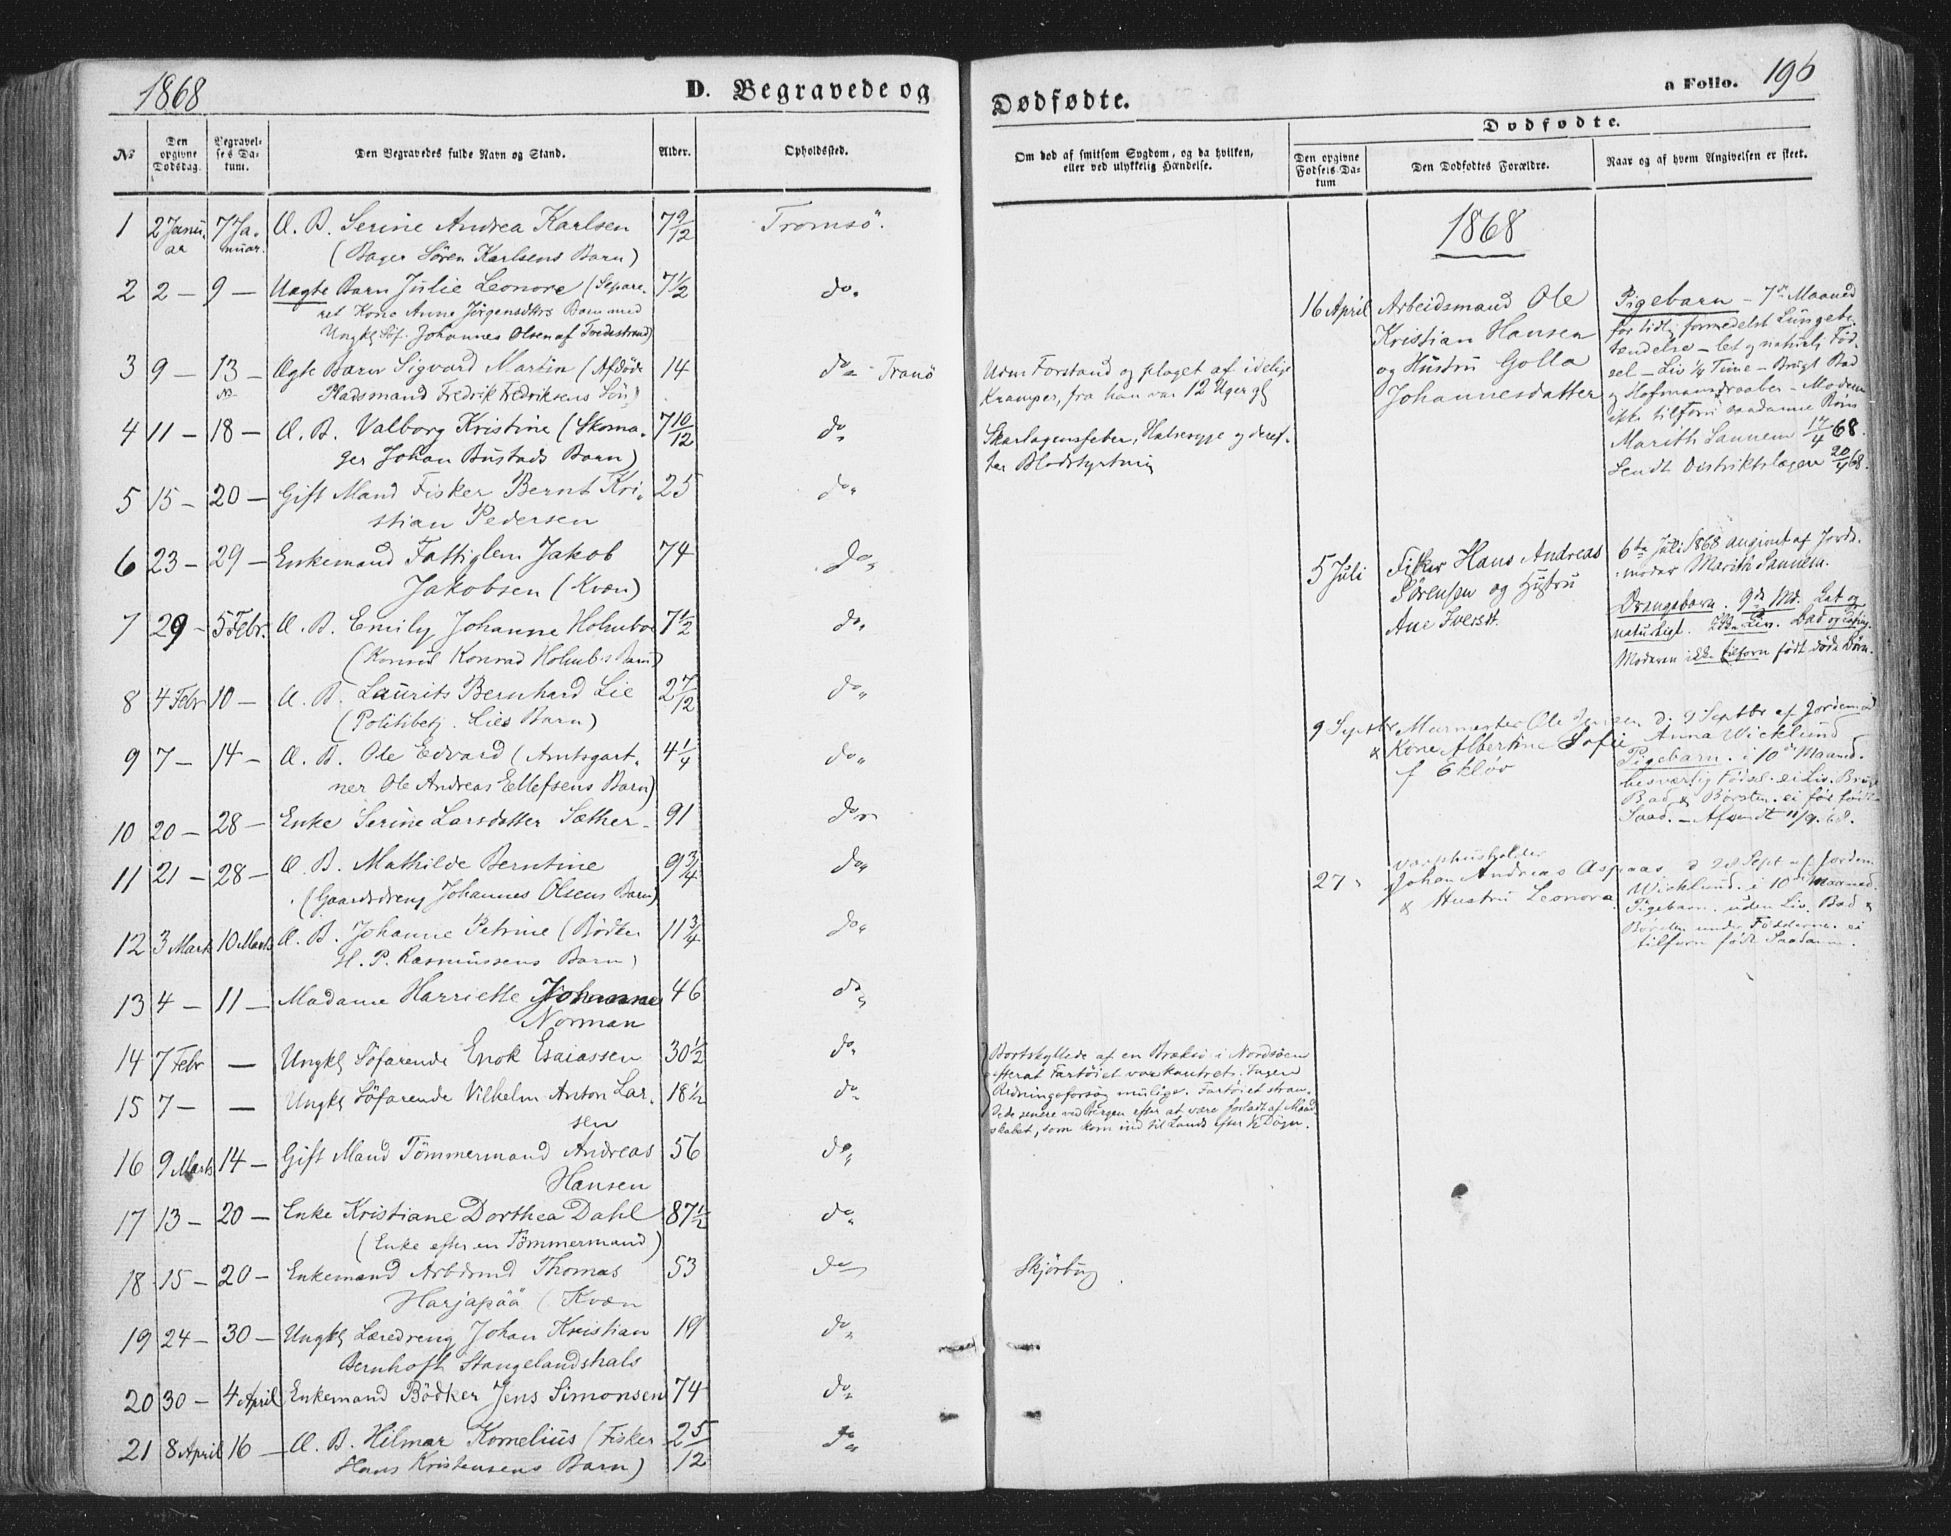 1868
D. Begravede og
Dødfødte.
a Folio. 196
No
Den opgivne Dødsdag.
Begravelses Datum.
Den Begravedes fulde Navn og Stand.
Alder.
Opholdssted.
Om død af smitsom Sygdom, og da hvilken, eller ved ulykkelig Hændelse.
Dødfødte.
Den opgivne Fødsels-Datum
Den Dødfødtes Forældre.
Naar og af hvem Angivelsen er skeet.
1 2 Januar 7 Januar. Æ. B. Serine Andrea Karlsen 7 9/12 Tromsö.
(Bager Sören Karlsens Barn)
2 2 — 9 — Uægte Barn Julie Leonore (Separe- 7 1/2 do.
ret Kone Anne Jörgensdtrs Barn med
Ungkl Söf. Johannes Olsen af Tvedestrand)
3 9 — 13 — Ægte Barn Sigvard Martin (Afdöde 14 do Tranö
Pladsmand Fredrik Fredriksens Sön)
Uden Forstand og plaget af idelige
Kramper, fra han var 12 Uger gl
4 11 — 18 — Æ. B. Valborg Kristine (Skoma- 7 10/12 do
ger Johan Bustads Barn)
Skarlagensfeber, Halssyge og deref-
ter Blodstyrtning
5 15 — 20 — Gift Mand Fisker Bernt Kri- 25 do
stian Pedersen
6 23 — 29 — Enkemand Fattiglem Jakob 74 do
Jakobsen (Kvæn)
7 29 — 5 Febr. Æ. B. Emily Johanne Holmboe 7 1/2 do
(Konsul Konrad Holmboes Barn)
8 4 Febr 10 — Æ. B. Laurits Bernhard Lie 2 7/12 do
(Politibetj. Lies Barn)
9 7 — 14 — Æ. B. Ole Edvard (Amtsgart- 4 1/4 do
ner Ole Andreas Ellefsens Barn)
10 20 — 28 — Enke Serine Larsdatter Sæther 91 do
11 21 — 28 — Æ. B. Mathilde Berntine 9 3/4 do
(Gaardsdreng Johannes Olsens Barn)
12 3 Marts 10 Marts Æ. B. Johanne Petrine (Bödker 11 3/4 do
H. P. Rasmussens Barn)
13 4 — 11 — Madame Harriette Johanne 46 do
Norman
14 7 Febr — Ungkl Söfarende Enok Esaiassen 30 1/2 do
15 7 — — Ungkl Söfarende Vilhelm Anton Lar- 18 1/2 do
sen
Bortskyllede af en Braksö i Nordsöen
efterat Fartöiet var kantret. Ingen
Redningsforsög mulige. Fartöiet stran-
dede senere ved Bergen efter at være forladt af Mand-
skabet, som kom ind til Lands efter 1/2 Dögn.
16 9 Marts 14 — Gift Mand Tömmermand Andreas 56 do
Hansen
17 13 — 20 — Enke Kristiane Dorthea Dahl 87 1/2 do
(Enke efter en Tömmermand)
18 15 — 20 — Enkemand Arbdmd Thomas 53 do Skjörbug
Harjapää (Kvæn
19 24 — 30 — Ungkl Læredreng Johan Kristian 19 do
Bernhoft Stangelandshals
20 30 — 4 April Enkemand Bödker Jens Simonsen 74 do
21 8 April 16 — Æ. B. Hilmar Kornelius (Fisker 2 5/12 do
Hans Kristensens Barn)
1868
16 April Arbeidsmand Ole
Kristian Hansen
og Hustru Golla
Johannesdatter
Pigebarn — 7de Maaned
for tidlig formedelst Lungebe-
tændelse — let og naturlig Föd-
sel — Liv 1/4 Time — Brugt Bad
og Hofmansdraaber — Moderen
ikke tilforn saadanne Börn
Marith Sannem 17/4 68.
Sendt Distriktslægen 20/4 68.
5 Juli Fisker Hans Andreas
Sörensen og Hustru
Ane Iversdt.
6te Juli 1868 angivet af Jorde-
moder Marith Sannem.
Drengebarn. 9de Md. Let og
naturligt. Liv. Bad og
Moderen ikke tilforn födt döde Börn.
9 Septbr Murmester Ole Jensen
& Kone Albertine Sofie
f Eklöv
d. 9 Septbr af Jordemod
Anna Wicklund
Pigebarn. i 10de Maaned.
besværlig Födsel. ei Liv. Brugt
Bad & Börsten. ei för födt
Saad. — Afsendt 11/9. 68.
27 Varphusholder
Johan Andreas Aspaas
& Hustru Leonora
d 28 Sept af Jordem
Wicklund. i 10de Maaned.
Pigebarn. uden Liv. Bad &
Börsten under Födderne. ei
tilforn födt Saadanne.